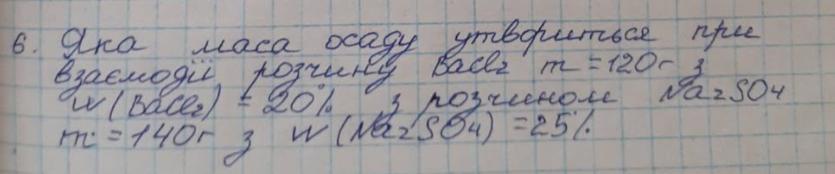 6. Яка маса осаду утвориться при
взаємодії розчину BaCl₂ m = 120г з
w (BaCl₂) = 20% з розчином Na₂SO₄
m = 140г з w (Na₂SO₄) = 25%.